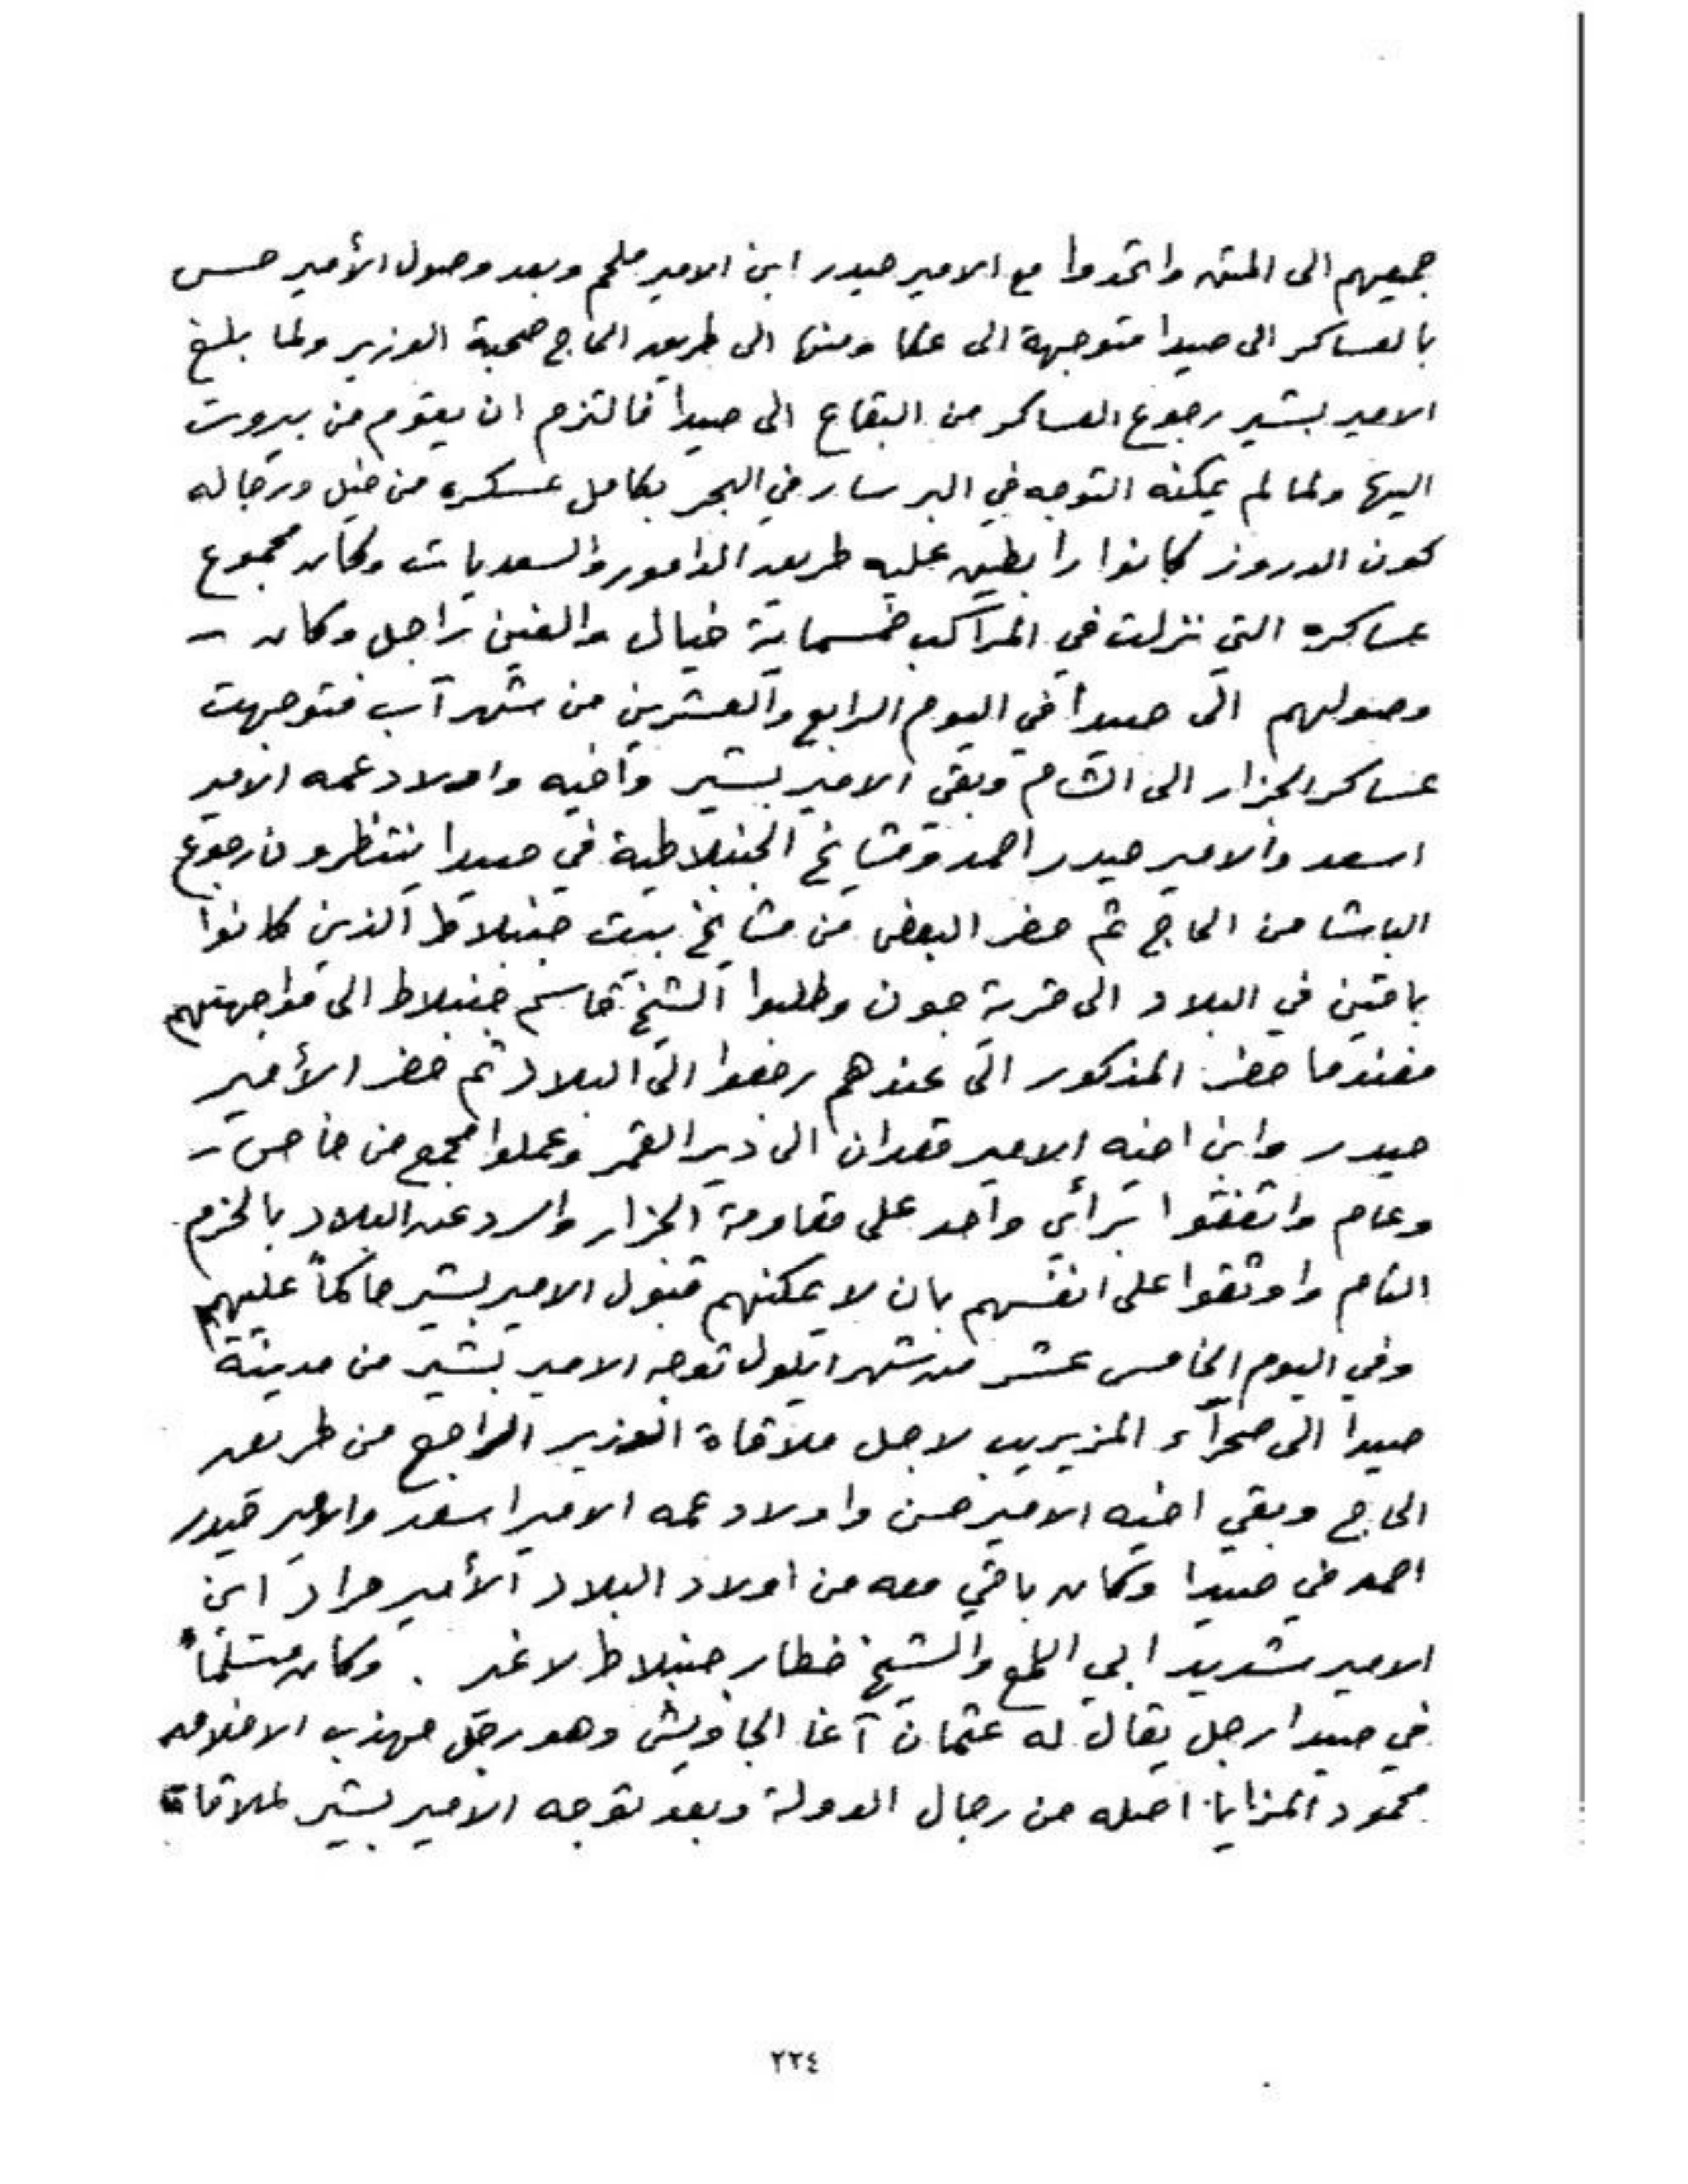 جميعهم الى المتن واتحدوا مع الامير حيدر ابن الامير ملحم وبعد وصول الأمير حسن
بالعساكر الى صيدا متوجهة الى عكا ومنها الى طريق الحاج صحبة الوزير ولما بلغ
الامير بشير رجوع العساكر من البقاع الى صيدا فالتزم ان يقوم من بيروت
اليها ولما لم يمكنه التوجه في البر سار في البحر بكامل عسكره من خيل ورجاله
كون الدروز كانوا رابطين عليه طريق الدامور والسعديات وكان مجموع
عساكره التي نزلت في المراكب خمسماية خيال والفين راجل وكان
وصولهم الى صيدا في اليوم الرابع والعشرين من شهر آب فتوجهت
عساكر الجزار الى الشام وبقي الامير بشير واخيه واولاد عمه الامير
اسعد والامير حيدر احمد ومشايخ الجنبلاطية في صيدا ينتظرون رجوع
الباشا من الحاج ثم حضر البعض من مشايخ بيت جنبلاط الذين كانوا
باقين في البلاد الى قرية جون وطلبوا الشيخ قاسم جنبلاط الى مواجهتهم
فعندما حضر المذكور الى عندهم رجعوا الى البلاد ثم حضر الأمير
حيدر وابن اخيه الامير قعدان الى دير القمر وعملوا مجمع من خاص
وعام واتفقوا برأي واحد على مقاومة الجزار والرد عن البلاد بالحزم
التام واوثقوا على انفسهم بان لا يمكنهم قبول الامير بشير حاكماً عليهم
وفي اليوم الخامس عشر من شهر ايلول توجه الامير بشير من مدينة
صيدا الى صحرآء المزيريب لاجل ملاقاة الوزير الراجع من طريق
الحاج وبقي اخيه الامير حسن واولاد عمه الامير اسعد والامير حيدر
احمد في صيدا وكان باقي معه من اولاد البلاد الأمير مراد ابن
الامير شديد ابي اللمع والشيخ خطار جنبلاط لا غير . وكان متسلماً
في صيدا رجل يقال له عثمان آغا الجاويش وهو رجل مهذب الاخلاق
محمود المزايا اصله من رجال الدولة وبعد توجه الامير بشير لملاقاة
٢٢٤